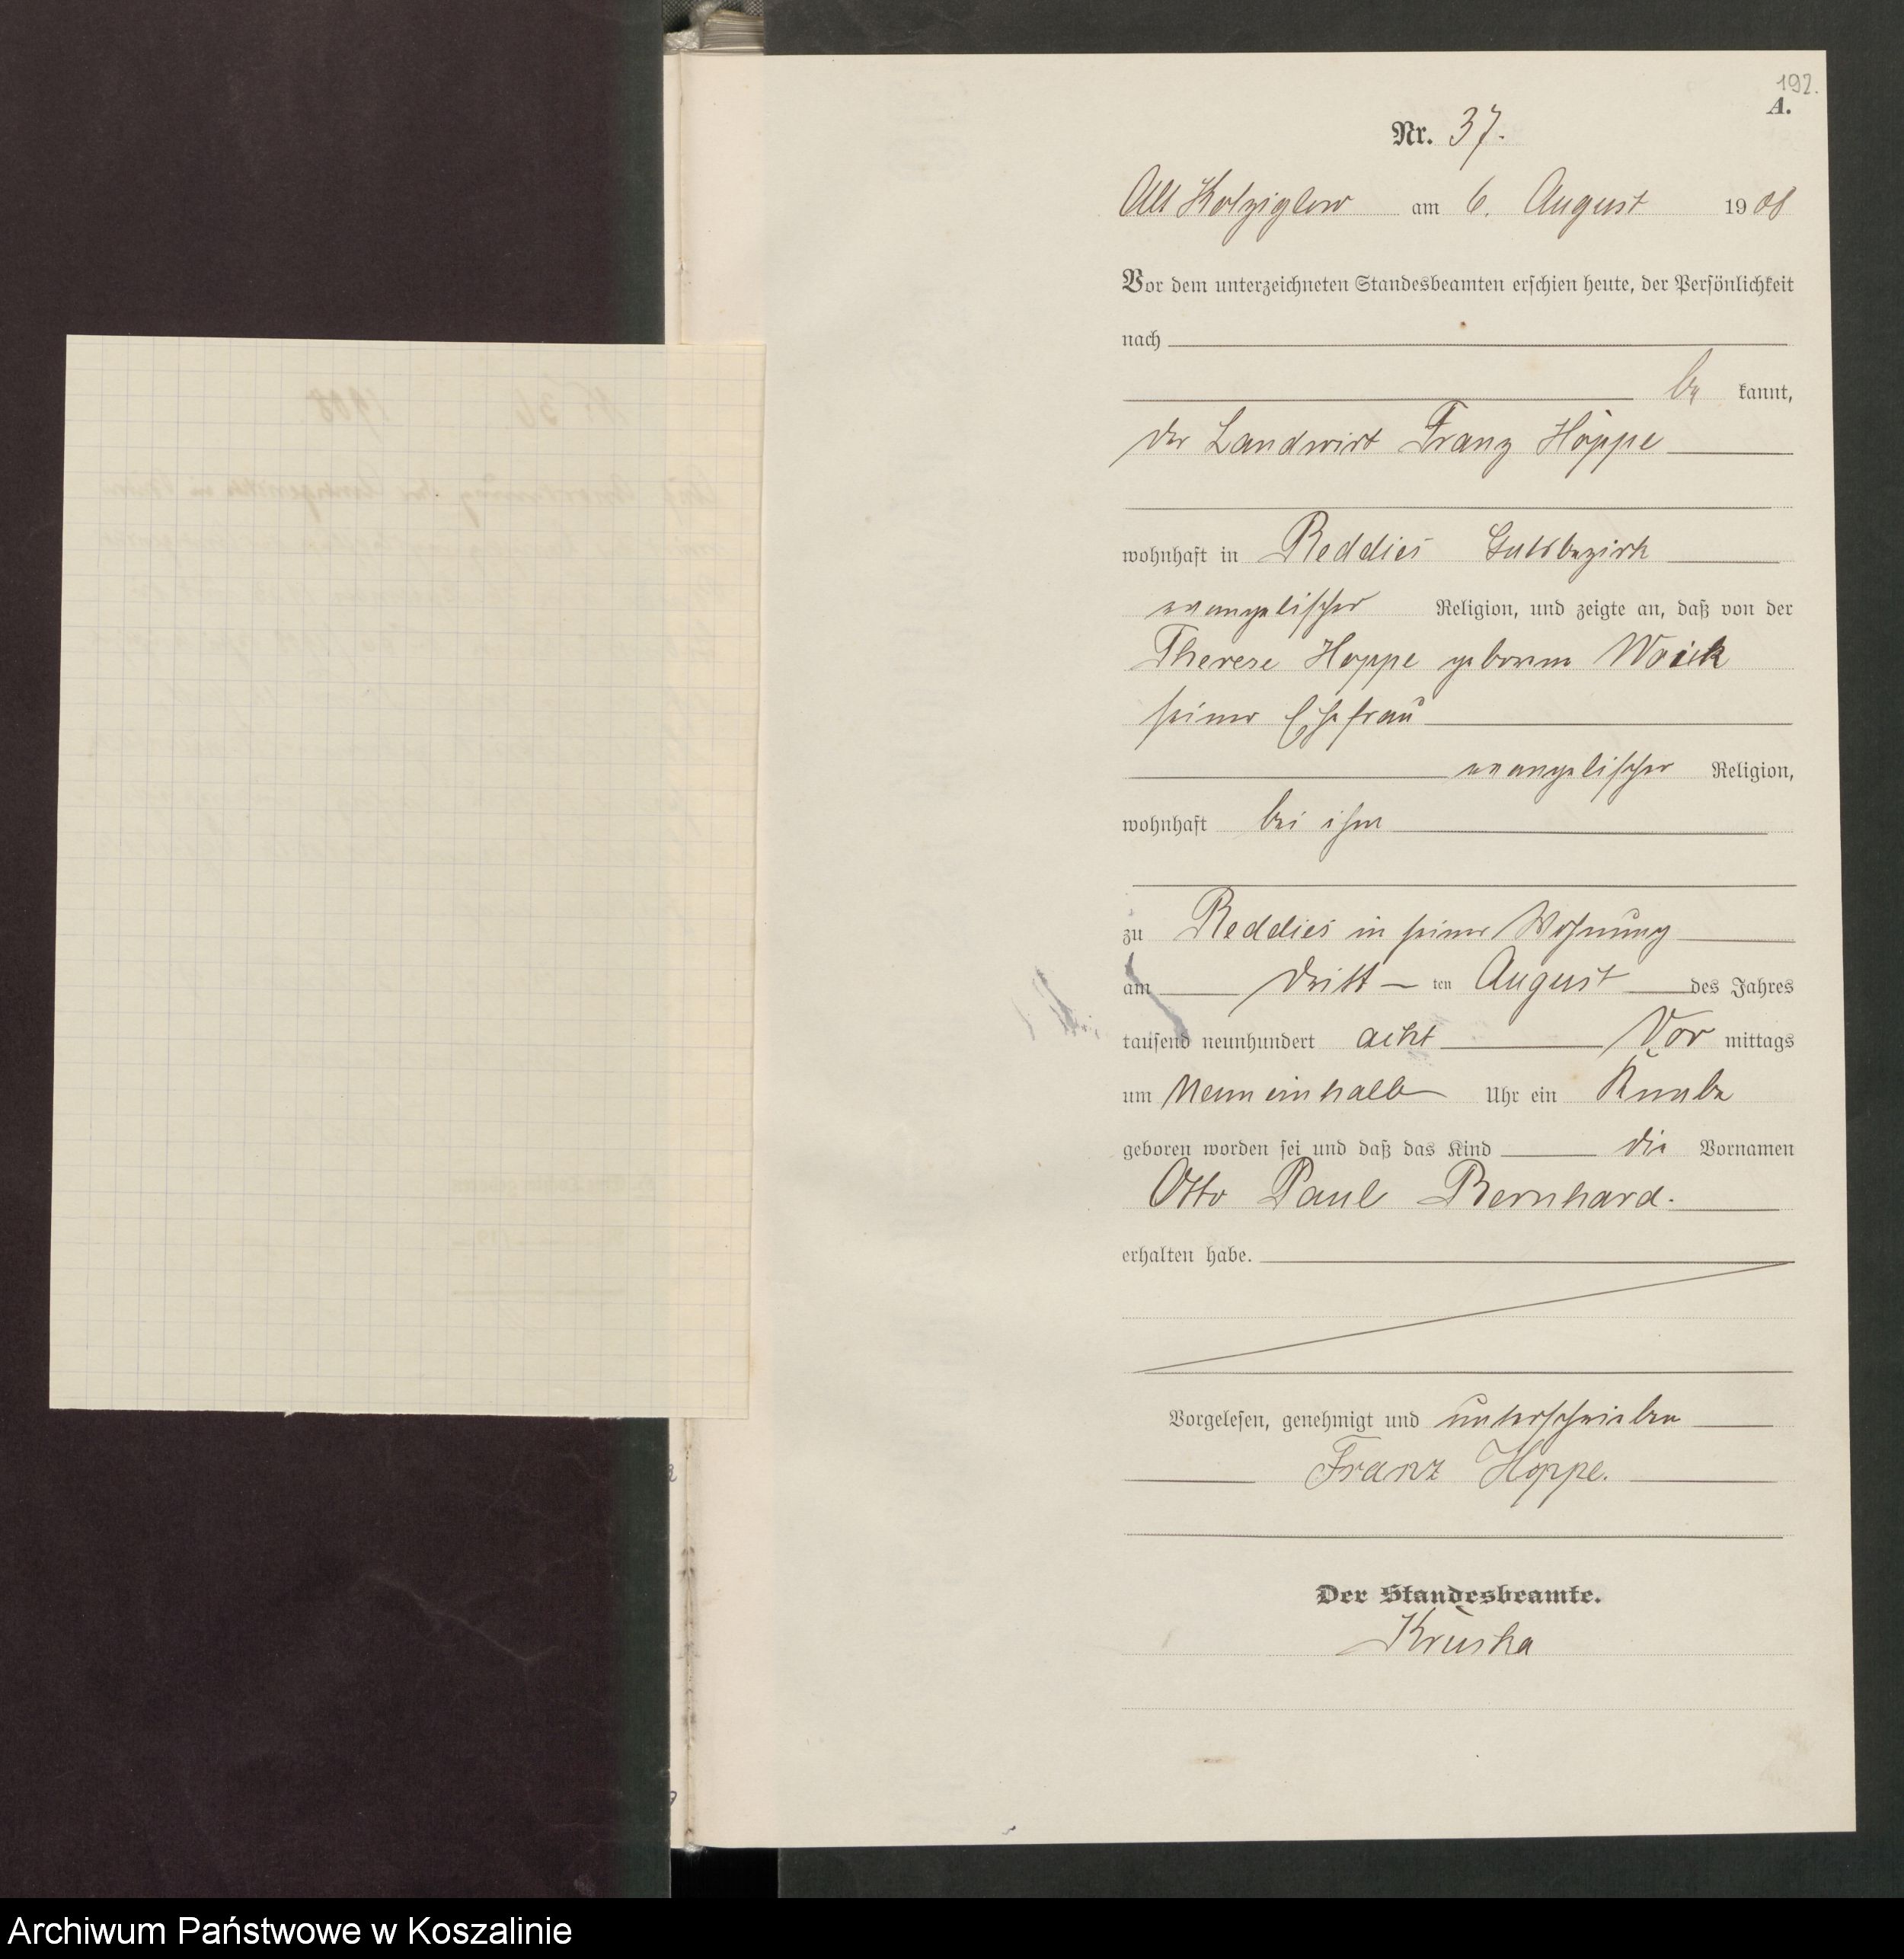 192.
A.
Nr. 37.
Alt Kolziglow am 6. August 1908
Vor dem unterzeichneten Standesbeamten erschien heute, der Persönlichkeit
nach
be kannt,
der Landwirt Franz Hoppe
wohnhaft in Reddies Gutsbezirk
evangelischer Religion, und zeigte an, daß von der
Therese Hoppe geborene Woick
seiner Ehefrau
evangelischer Religion,
wohnhaft bei ihm
zu Reddies in seiner Wohnung
am dritt ten August des Jahres
tausend neunhundert acht Vor mittags
um Neun ein halb Uhr ein Knabe
geboren worden sei und daß das Kind die Vornamen
Otto Paul Bernhard.
erhalten habe.
Vorgelesen, genehmigt und unterschrieben
Franz Hoppe.
Der Standesbeamte.
Kruska
Archiwum Państwowe w Koszalinie